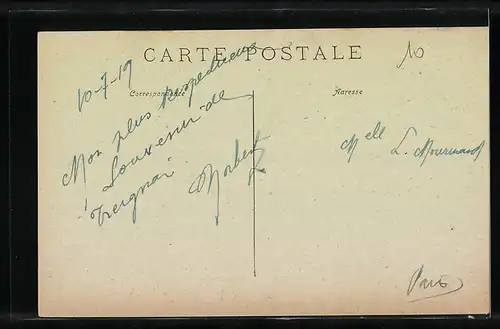 CARTE POSTALE
10
Correspondance
Adresse
10-7-19
Mon plus respectueux
Souvenir de
Treignac
Norbert
Mell L.
Paris